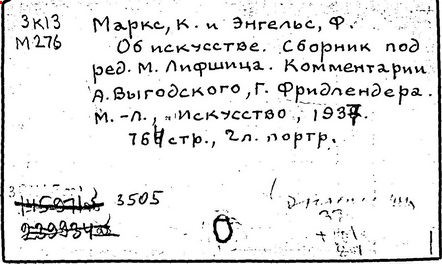 3К13 Маркс, К. и Энгельс, Ф.
М276 Об искусстве. Сборник под
ред. М. Лифшица. Комментарии
А. Выгодского, Г. Фридлендера.
М.-Л., "Искусство, 1937.
764 стр., 2л. портр.
3505